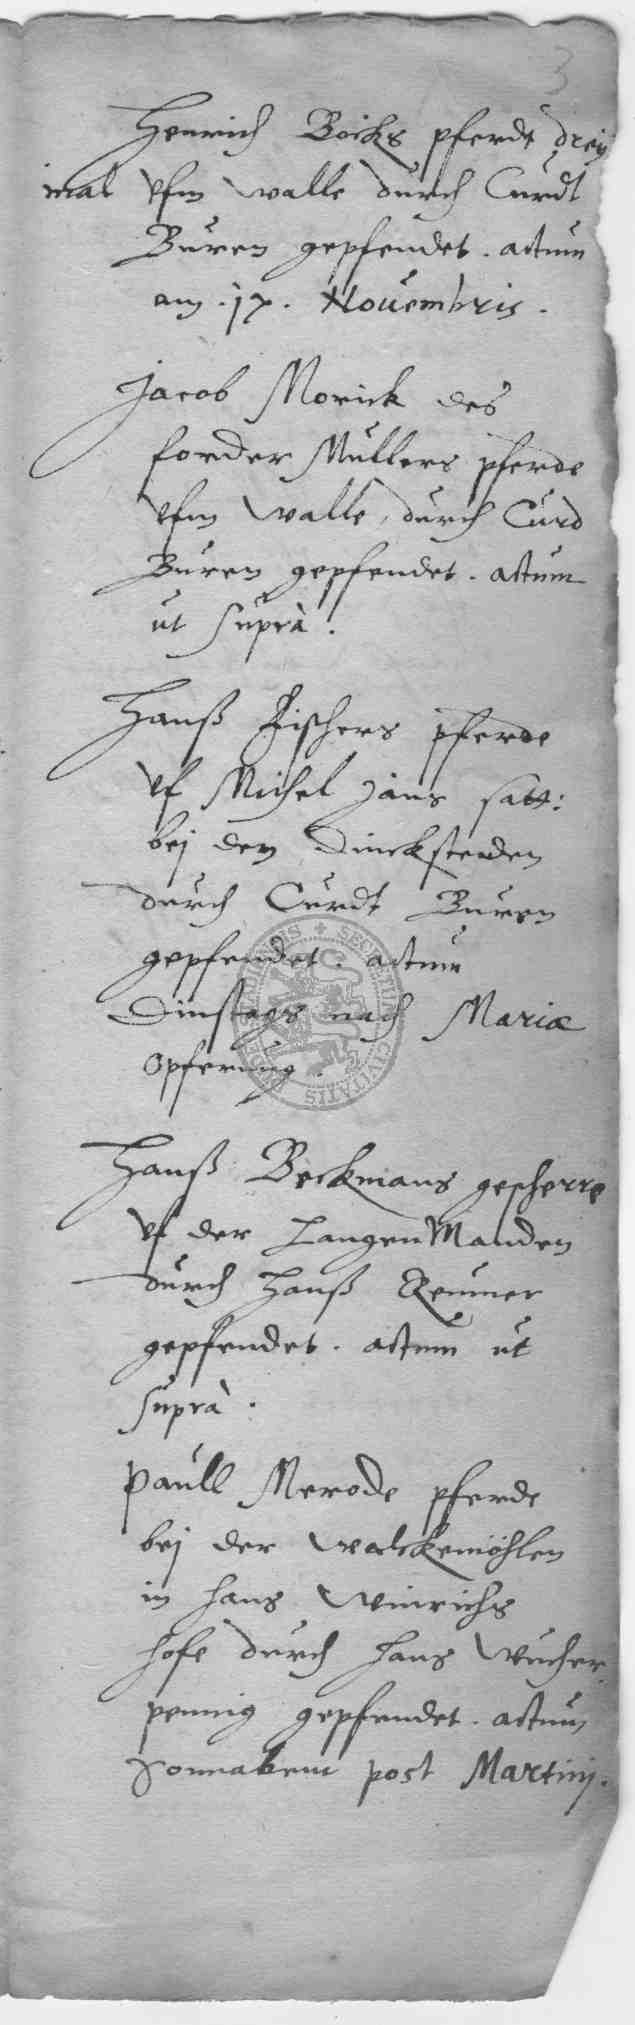 3
Henrich Bocks pferde drey
mal ufm walle durch Curdt
Buren gepfendet. actum
am .17. Nouembris.
Jacob Morick des
forder Mullers pferde
ufm walle, durch Curd
Buren gepfendet. actum
ut suprà.
Hanß Fischers pferde
uf Michel Hans satt:
bei den Dincksteden
durch Curdt Buren
gepfendet. actum
Dinstags nach Mariæ
Opferung.
Hanß Beckmans gescherre
uf der Langen Manden
durch Hanß
gepfendet. actum ut
suprà.
Paull Merode pferde
bei der Walckemöhlen
in Hans Winrichs
Hofe durch Hans Wucher
pennig gepfendet. actum
Sonnabent post Martinj.
SECRETUM CIVITATIS